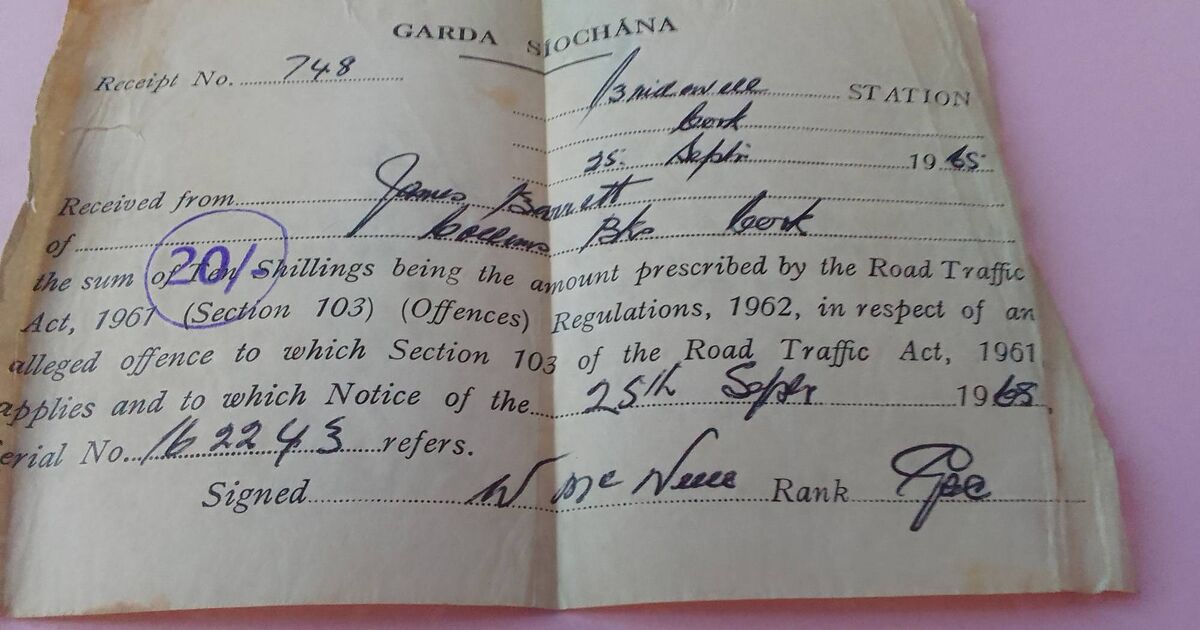 GARDA SÍOCHÁNA
Receipt No. 748
Bridewell STATION
Cork
25. Septr 1965
Received from James Barrett
of Collins Bks Cork
the sum of Ten Shillings being the amount prescribed by the Road Traffic
20/-
Act, 1961 (Section 103) (Offences) Regulations, 1962, in respect of an
alleged offence to which Section 103 of the Road Traffic Act, 1961
applies and to which Notice of the 25th Septr 1965,
erial No. 162243 refers.
Signed W McNeill Rank